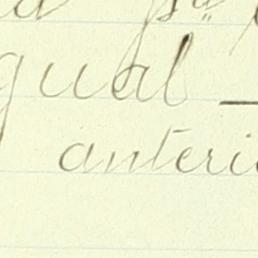 gual —
anteri